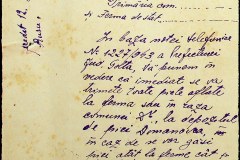 Primăria com.
și Ferma de Stat
În baza notei telefonice
Nr. 1227/963 a Prefecturei
Jud. Golta, Vă punem în
vedere ca imediat se va
trimite toate piele aflate
la ferma sau în raza
comunei, la depozitul
de piei Domanovca, în
în caz de se vor găsi
piei atât la ferme cât și